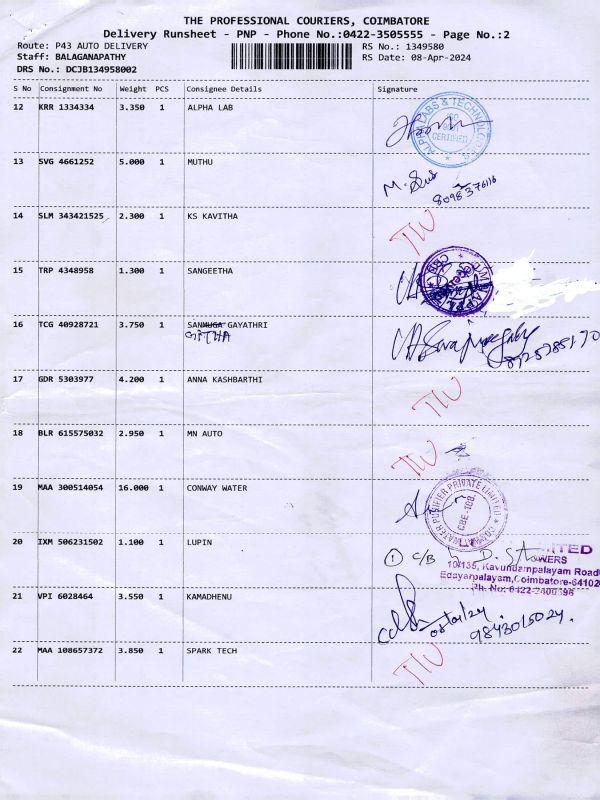 THE PROFESSIONAL COURIERS, COIMBATORE
Delivery Runsheet - PNP - Phone No.:0422-3505555 - Page No.:2
Route: P43 AUTO DELIVERY RS No.: 1349580
Staff: BALAGANAPATHY RS Date: 08-Apr-2024
DRS No.: DCJB134958002
S No Consignment No Weight PCS Consignee Details Signature
12 KRR 1334334 3.350 1 ALPHA LAB
ALPHA LABS & TECHNOLOGIES
CERTIFIED
13 SVG 4661252 5.000 1 MUTHU
8098376116
14 SLM 343421525 2.300 1 KS KAVITHA
15 TRP 4348958 1.300 1 SANGEETHA
16 TCG 40928721 3.750 1 SANMUGA GAYATHRI
17 GDR 5303977 4.200 1 ANNA KASHBARTHI
18 BLR 615575032 2.950 1 MN AUTO
19 MAA 300514054 16.000 1 CONWAY WATER
WATER PURIFIER PRIVATE LIMITED
CBE-108
20 IXM 506231502 1.100 1 LUPIN
1 C/B
10/135, Kavundampalayam Road
Edayarpalayam, Coimbatore-64102
Ph. No: 0422-2400396
21 VPI 6028464 3.550 1 KAMADHENU
9843015024.
22 MAA 108657372 3.850 1 SPARK TECH